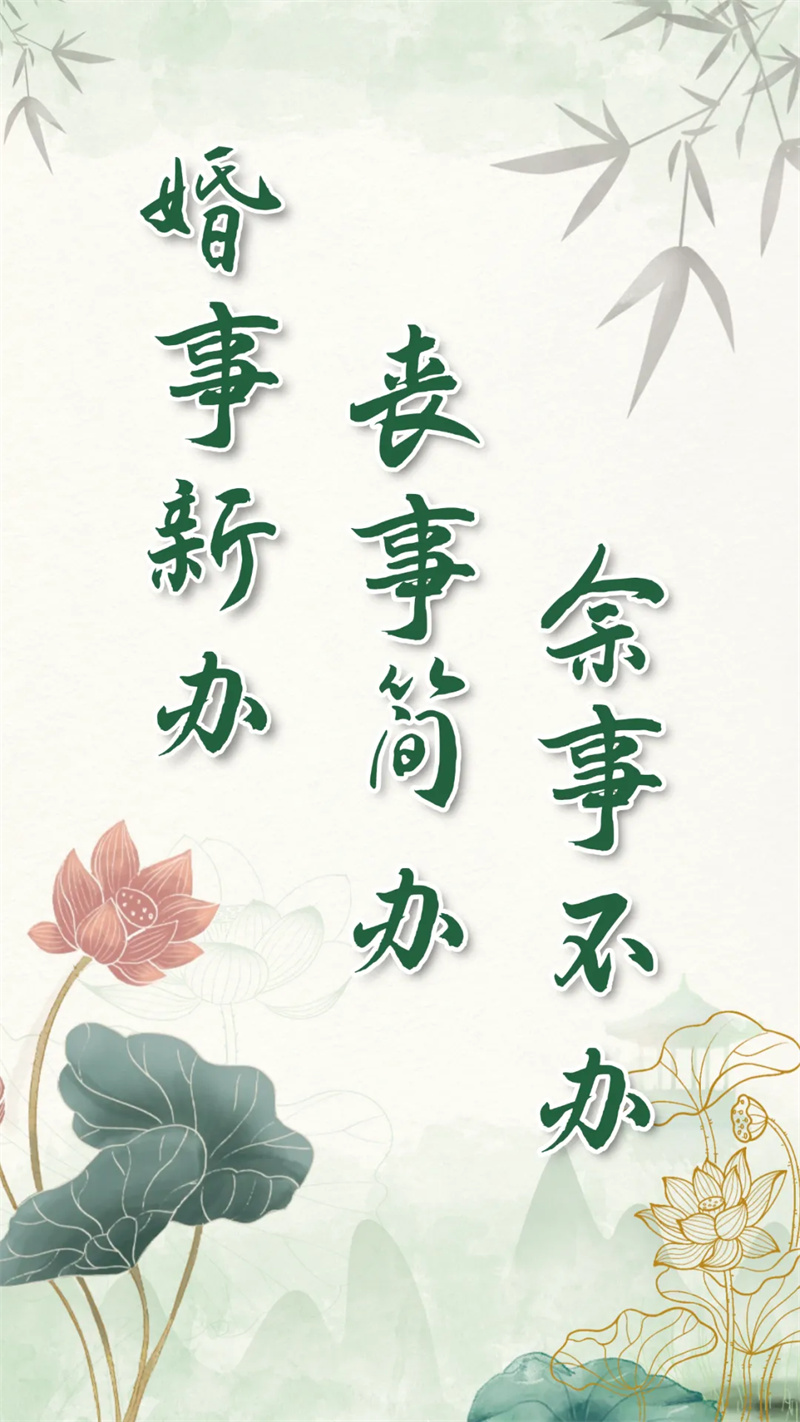 婚事新办
丧事简办
余事不办